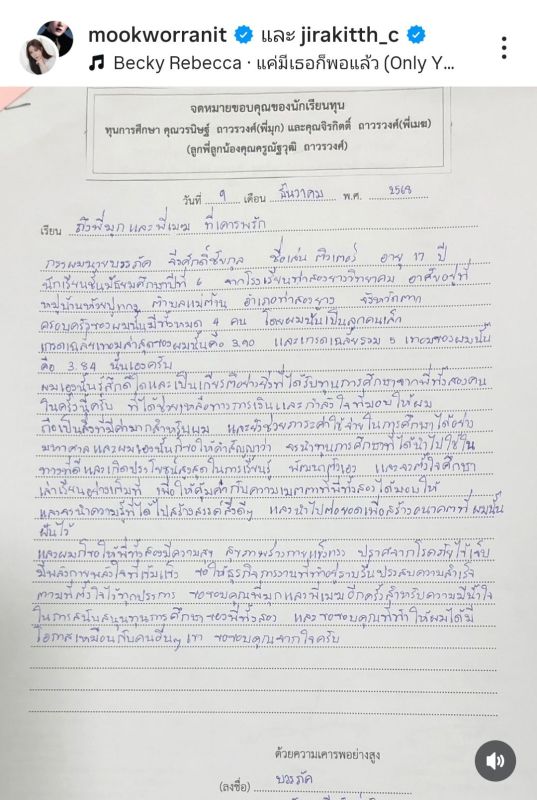 mookworranit และ jirakitth_c
Becky Rebecca · แค่มีเธอก็พอแล้ว (Only Y...
จดหมายขอบคุณของนักเรียนทุน
ทุนการศึกษา คุณวรนิษฐ์ ถาวรวงศ์(พี่มุก) และคุณจิรกิตติ์ ถาวรวงศ์(พี่เมฆ)
(ลูกพี่ลูกน้องคุณครูณัฐวุฒิ ถาวรวงศ์)
วันที่ 9 เดือน ธันวาคม พ.ศ. 2568
เรียน ถึงพี่มุก และพี่เมฆ ที่เคารพรัก
กระผมนายบวรภัค ชื่อเล่น อายุ 17 ปี
นักเรียนชั้นมัธยมศึกษาปีที่ 6 จากโรงเรียนท่าสองยางวิทยาคม อาศัยอยู่ที่
หมู่บ้านห้วยปูแกง ตำบลแม่ต้าน อำเภอท่าสองยาง จังหวัดตาก
ครอบครัวของผมนั้นมีทั้งหมด 4 คน โดยผมนั้นเป็นลูกคนเล็ก
เกรดเฉลี่ยเทอมล่าสุดของผมนั้นคือ 3.90 และเกรดเฉลี่ยรวม 5 เทอมของผมนั้น
คือ 3.84 นั้นเองครับ
ผมเองนั้นรู้สึกดีใจและเป็นเกียรติอย่างยิ่งที่ได้รับทุนการศึกษาจากพี่ทั้งสองคน
ในครั้งนี้ครับ ที่ได้ช่วยเหลือทางการเงินและกำลังใจที่มอบให้ผม
ถือเป็นสิ่งที่มีค่ามากสำหรับผม และยังช่วยภาระค่าใช้จ่ายในการศึกษาได้อย่าง
มหาศาลและผมเองนั้นก็ขอให้คำสัญญาว่า จะนำทุนการศึกษาที่ได้นำไปใช้ใน
ทางที่ดีและเกิดประโยชน์สูงสุดในการเรียนรู้ พัฒนาตัวเอง และจะตั้งใจศึกษา
เล่าเรียนอย่างเต็มที่ เพื่อให้คุ้มค่ากับความเมตตาที่พี่ทั้งสองได้มอบให้
และจะนำความรู้ที่ได้ไปสร้างสรรค์สิ่งดีๆ และนำไปต่อยอดเพื่อสร้างอนาคตที่ผมนั้น
ฝันไว้
และผมก็ขอให้พี่ทั้งสองมีความสุข สุขภาพร่างกายแข็งแรง ปราศจากโรคภัยไข้เจ็บ
มีพลังกายพลังใจที่เข้มแข็ง ขอให้ธุรกิจการงานที่ทำอยู่ราบรื่นประสบความสำเร็จ
ตามที่ตั้งใจไว้ทุกประการ ขอขอบคุณพี่มุกและพี่เมฆอีกครั้งสำหรับความมีน้ำใจ
ในการสนับสนุนทุนการศึกษาของพี่ทั้งสอง และขอขอบคุณที่ทำให้ผมได้มี
โอกาสเหมือนกับคนอื่นๆเขา ขอขอบคุณจากใจครับ
ด้วยความเคารพอย่างสูง
(ลงชื่อ) บวรภัค